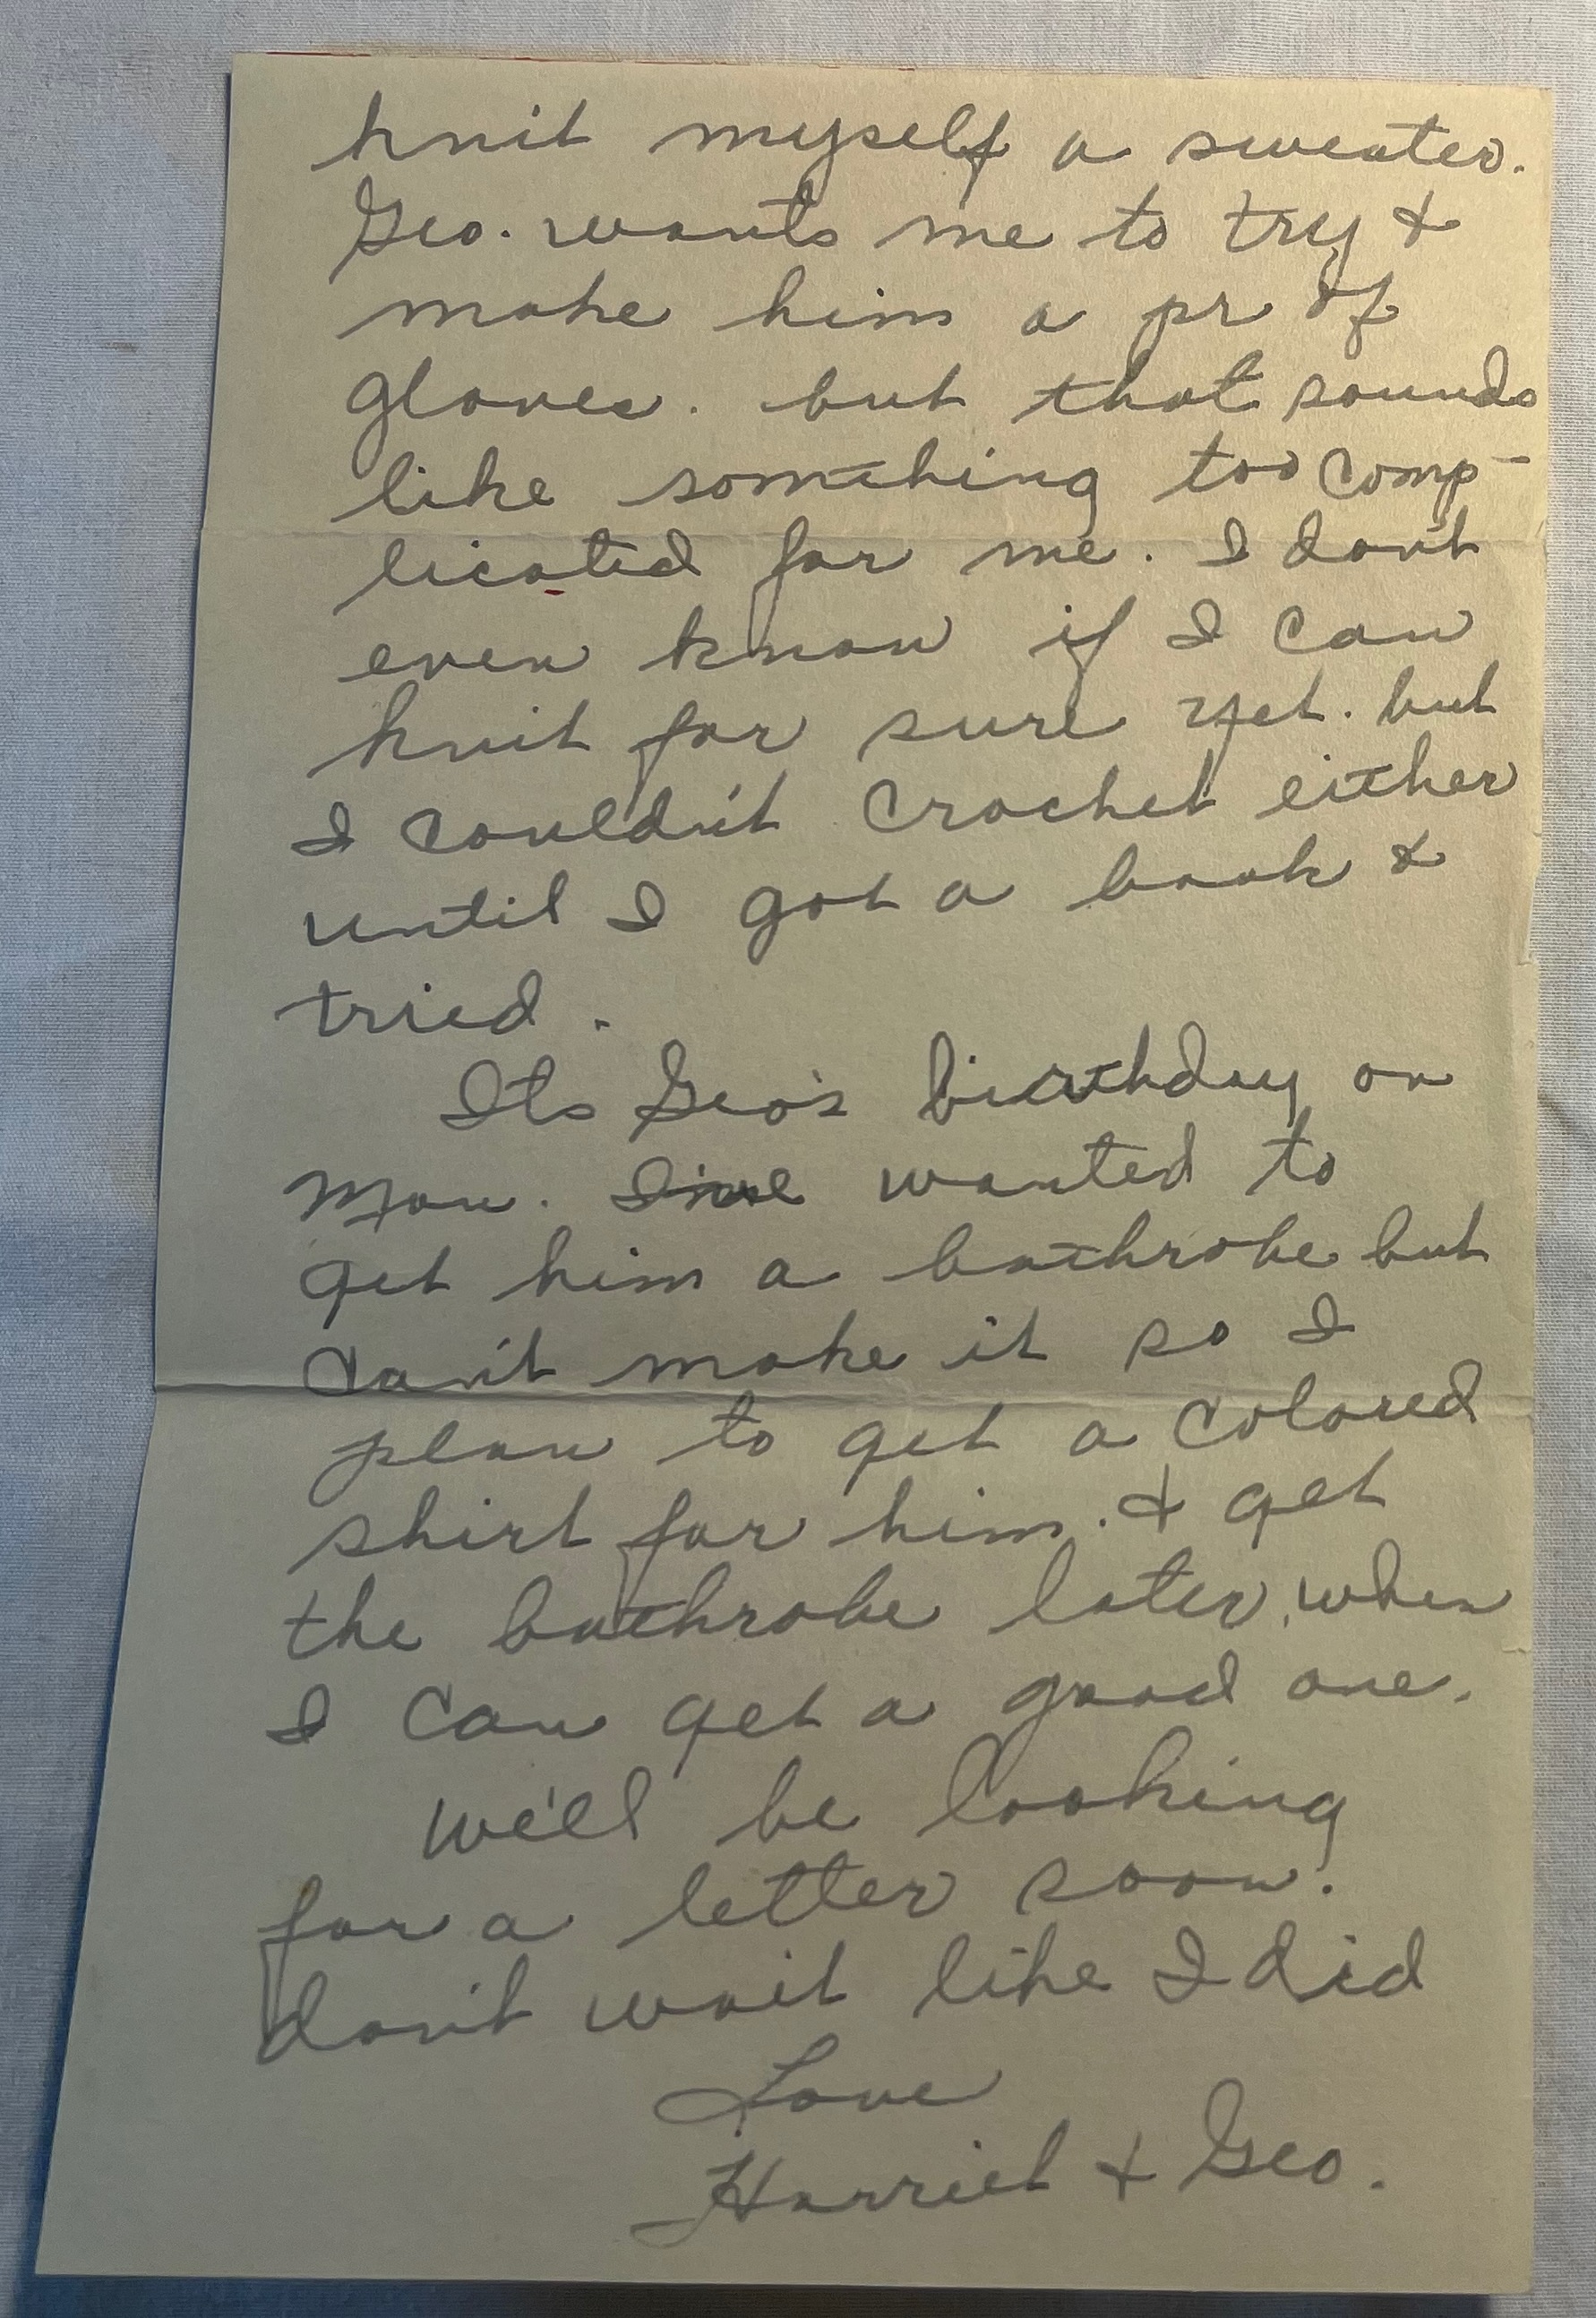 knit myself a sweater.
Geo. wants me to try &
make him a pr of
gloves. but that sounds
like something too comp-
licated for me. I don't
even know if I can
knit for sure yet. but
I couldn't crochet either
until I got a book &
tried.
Its Geo's birthday on
Mon. I've wanted to
get him a bathrobe but
can't make it so I
plan to get a colored
shirt for him. & get
the bathrobe later, when
I can get a good one.
We'll be looking
for a letter soon.
don't wait like I did
Love
Harriet & Geo.